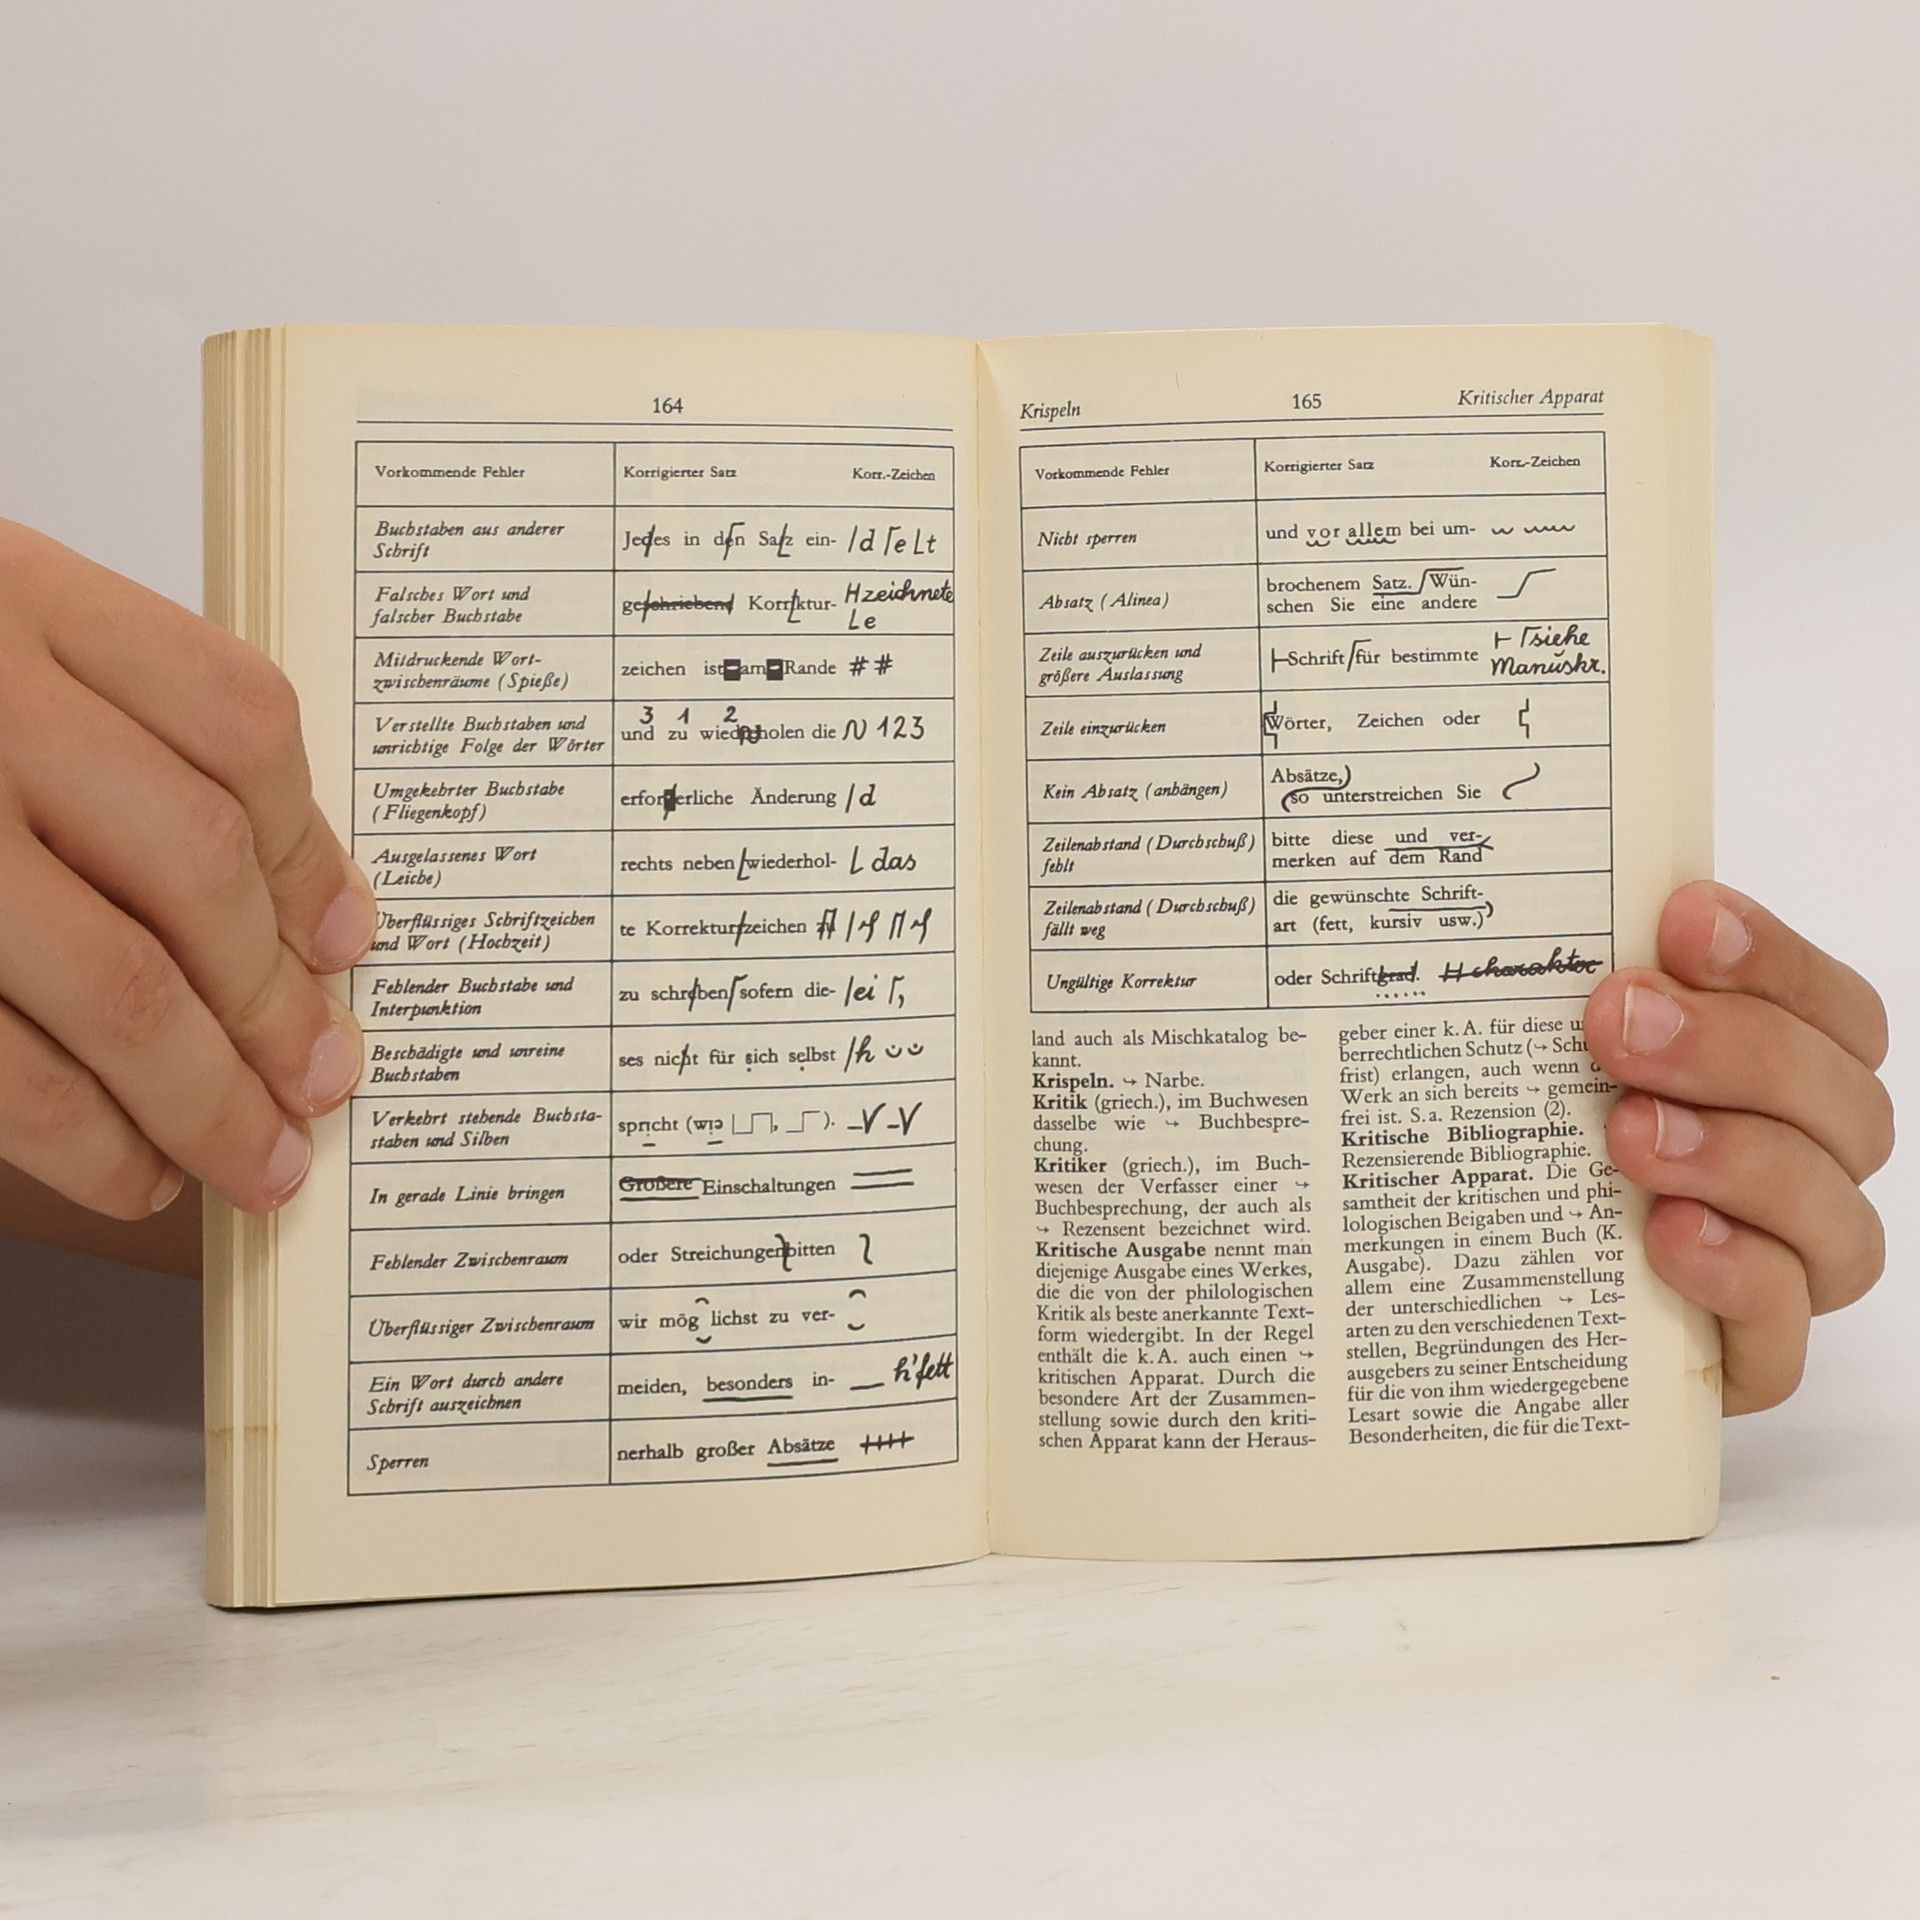 164
Vorkommende Fehler
Korrigierter Satz
Korr.-Zeichen
Buchstaben aus anderer
Schrift
Jedes in den Satz ein-
d e t
Falsches Wort und
falscher Buchstabe
geschriebene Korrektur-
zeichnete
e
Mitdruckende Wort-
zwischenräume (Spieße)
zeichen ist am Rande # #
Verstellte Buchstaben und
unrichtige Folge der Wörter
3 1 2
und zu die 1 2 3
Umgekehrter Buchstabe
(Fliegenkopf)
erforderliche Änderung
d
Ausgelassenes Wort
(Leiche)
rechts neben wiederhol-
das
Überflüssiges Schriftzeichen
und Wort (Hochzeit)
te Korrekturzeichen
Fehlender Buchstabe und
Interpunktion
zu schrben sofern die-
ei ,
Beschädigte und unreine
Buchstaben
ses nicht für sich selbst
h
Verkehrt stehende Buchsta-
staben und Silben
spricht (wie
In gerade Linie bringen
Größere Einschaltungen
Fehlender Zwischenraum
oder Streichungenbitten
Überflüssiger Zwischenraum
wir mög lichst zu ver-
Ein Wort durch andere
Schrift auszeichnen
meiden, besonders in-
h'fett
Sperren
nerhalb großer Absätze
Krispeln
165
Kritischer Apparat
Vorkommende Fehler
Korrigierter Satz
Korr.-Zeichen
Nicht sperren
und vor allem bei um-
Absatz (Alinea)
brochenem Satz. Wün-
schen Sie eine andere
Zeile auszurücken und
größere Auslassung
Schrift für bestimmte
siehe
Manuskr.
Zeile einzurücken
Wörter, Zeichen oder
Kein Absatz (anhängen)
Absätze,
so unterstreichen Sie
Zeilenabstand (Durchschuß)
fehlt
bitte diese und ver-
merken auf dem Rand
Zeilenabstand (Durchschuß)
fällt weg
die gewünschte Schrift-
art (fett, kursiv usw.)
Ungültige Korrektur
oder Schriftgrad.
charakter
land auch als Mischkatalog be-
kannt.
Krispeln. → Narbe.
Kritik (griech.), im Buchwesen
dasselbe wie → Buchbespre-
chung.
Kritiker (griech.), im Buch-
wesen der Verfasser einer →
Buchbesprechung, der auch als
→ Rezensent bezeichnet wird.
Kritische Ausgabe nennt man
diejenige Ausgabe eines Werkes,
die die von der philologischen
Kritik als beste anerkannte Text-
form wiedergibt. In der Regel
enthält die k. A. auch einen →
kritischen Apparat. Durch die
besondere Art der Zusammen-
stellung sowie durch den kriti-
schen Apparat kann der Heraus-
geber einer k. A. für diese
berrechtlichen Schutz (→
frist) erlangen, auch wenn
Werk an sich bereits → gemein-
frei ist. S. a. Rezension (2).
Kritische Bibliographie.
Rezensierende Bibliographie.
Kritischer Apparat. Die Ge-
samtheit der kritischen und phi-
lologischen Beigaben und → An-
merkungen in einem Buch (K.
Ausgabe). Dazu zählen vor
allem eine Zusammenstellung
der unterschiedlichen → Les-
arten zu den verschiedenen Text-
stellen, Begründungen des Her-
ausgebers zu seiner Entscheidung
für die von ihm wiedergegebene
Lesart sowie die Angabe aller
Besonderheiten, die für die Text-